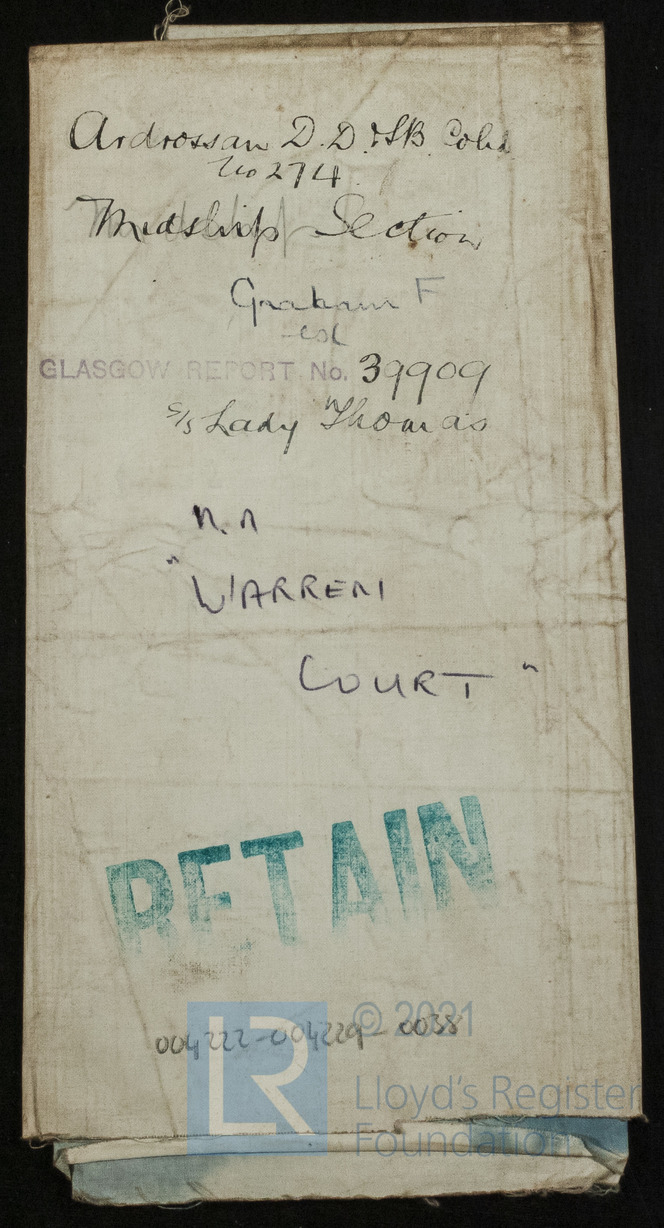 Ardrossan D.D. & SB Co Ld
No 274
Midship Section
Graham F
GLASGOW REPORT No. 39909
S/S Lady Thomas
"WARREN
COURT"
RETAIN
004222-004229-0038
© 2021
LR
Lloyd's Register
Foundation